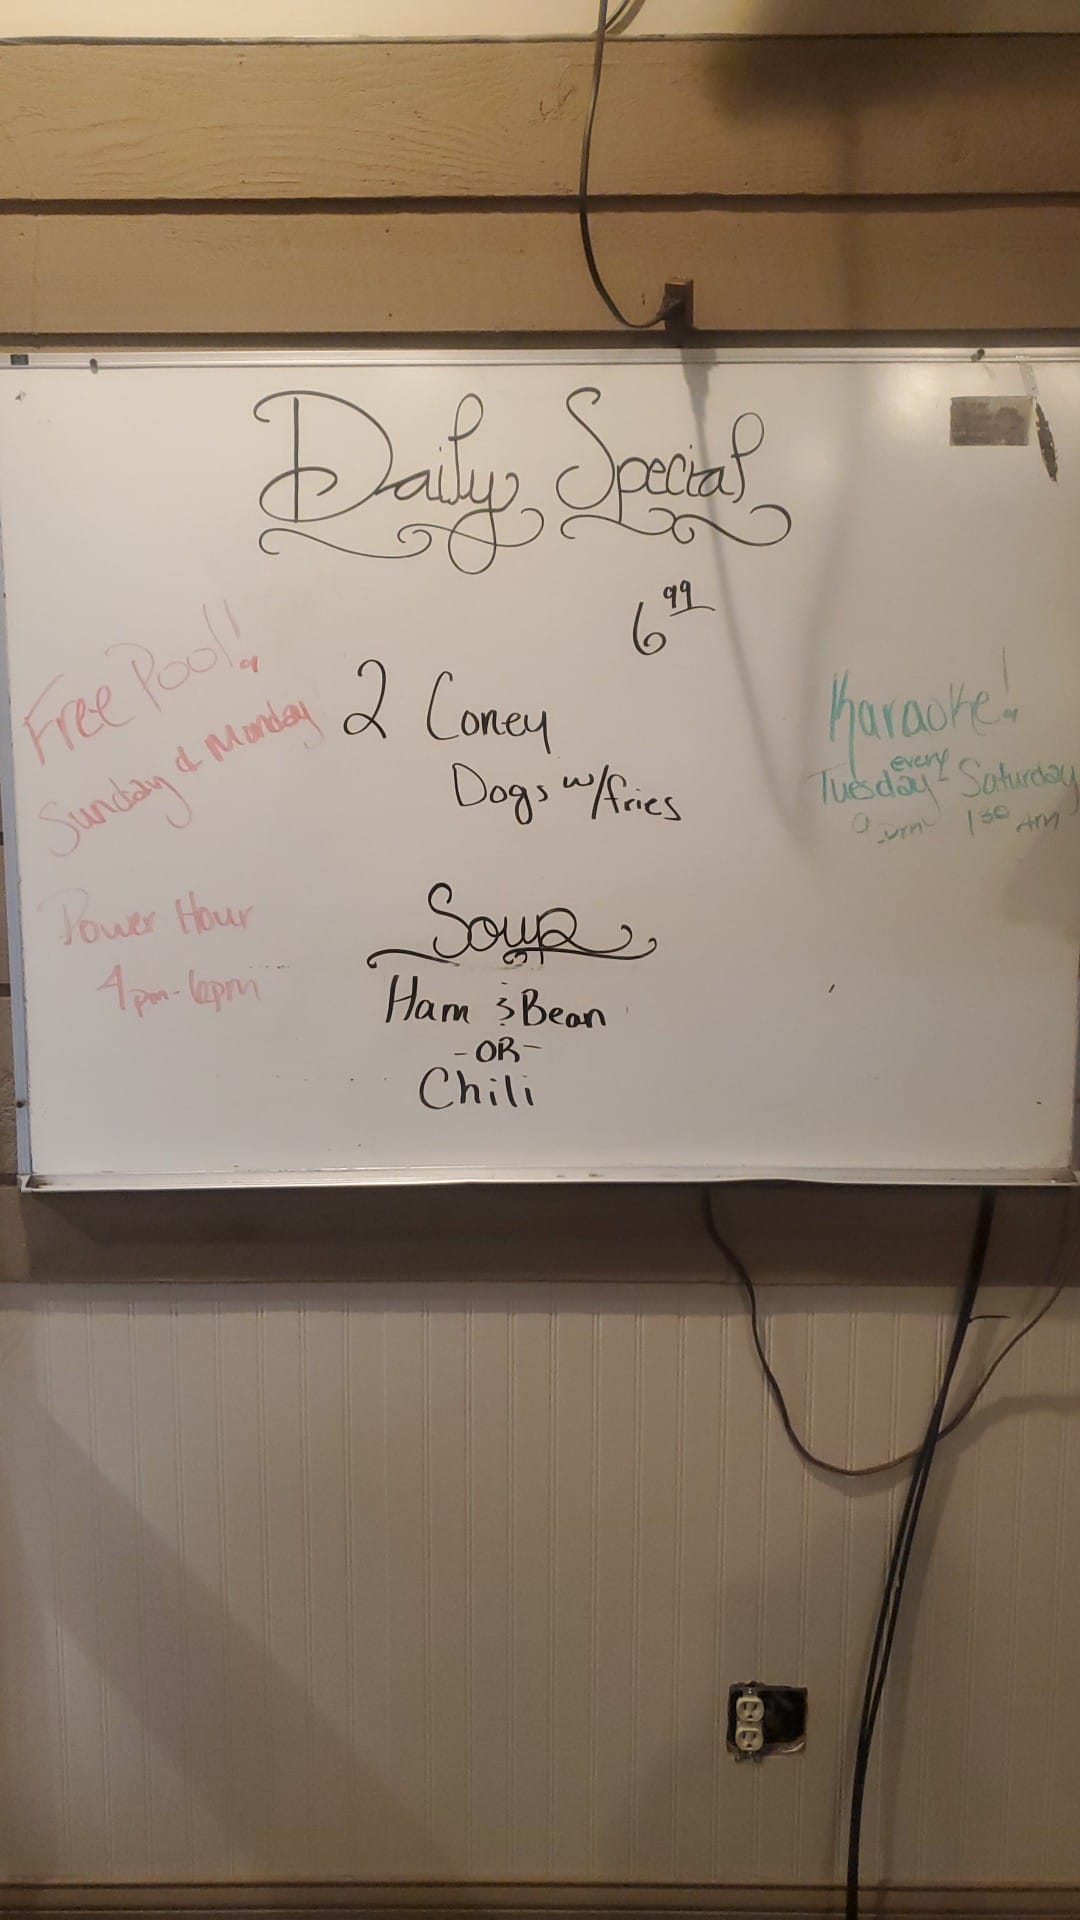 Daily Special
6 99
2 Coney
Dogs w/fries
Free Pool!
Sunday & Monday
Power Hour
4pm-6pm
Karaoke!
every
Tuesday - Saturday
1 30 AM
Soup
Ham & Bean
-OR-
Chili